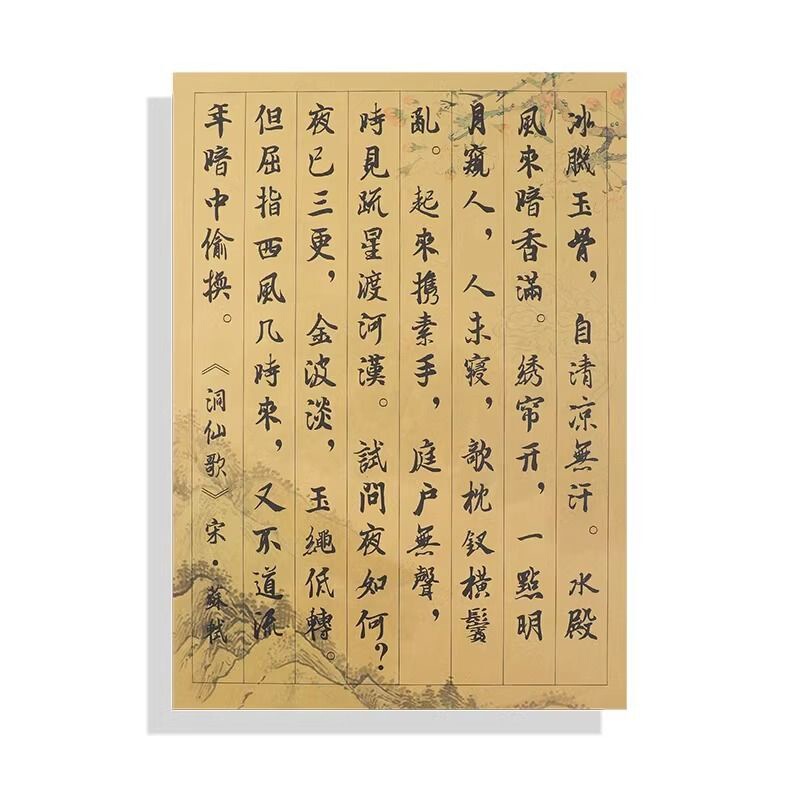 冰肌玉骨，自清凉無汗。水殿
風來暗香滿。绣帘开，一點明
月窺人，人未寢，歌枕釵橫鬢
亂。起來携素手，庭户無聲，
時見疏星渡河漢。試問夜如何？
夜已三更，金波淡，玉繩低轉。
但屈指西風几時來，又不道流
年暗中偷換。《洞仙歌》宋·蘇軾